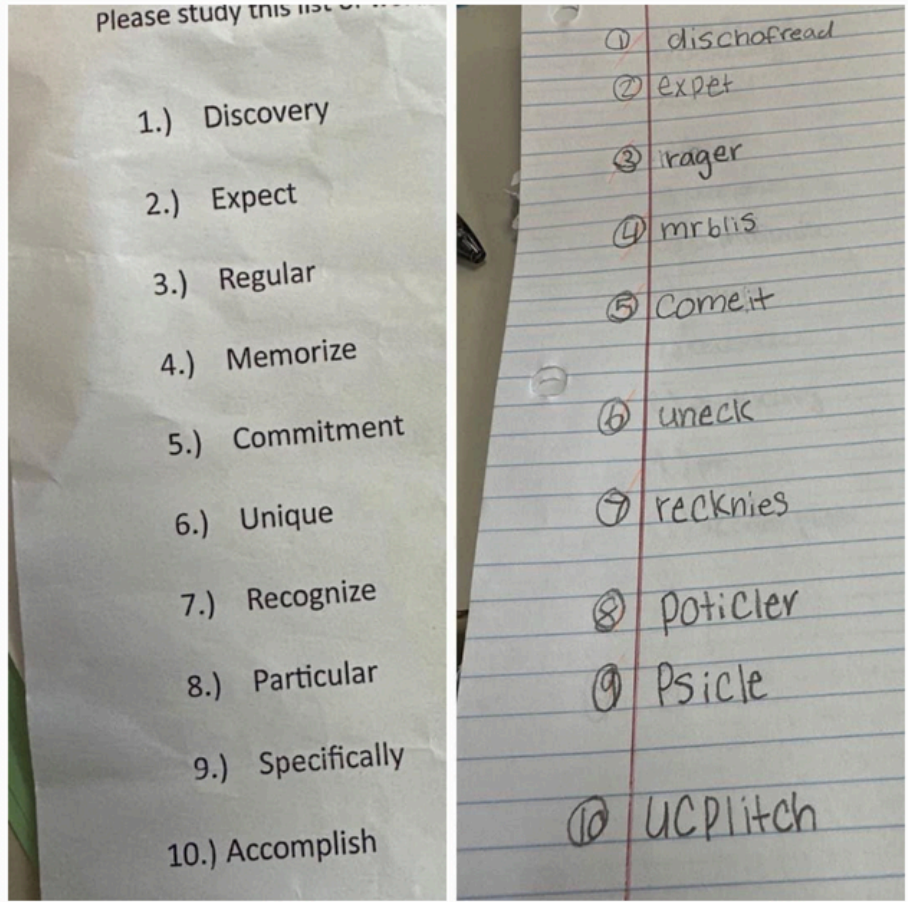 Please study this list of
1.) Discovery
2.) Expect
3.) Regular
4.) Memorize
5.) Commitment
6.) Unique
7.) Recognize
8.) Particular
9.) Specifically
10.) Accomplish
1 dischofread
2 expet
3 rager
4 mrblis
5 Comeit
6 uneck
7 recknies
8 Poticler
9 Psicle
10 UCPlitch